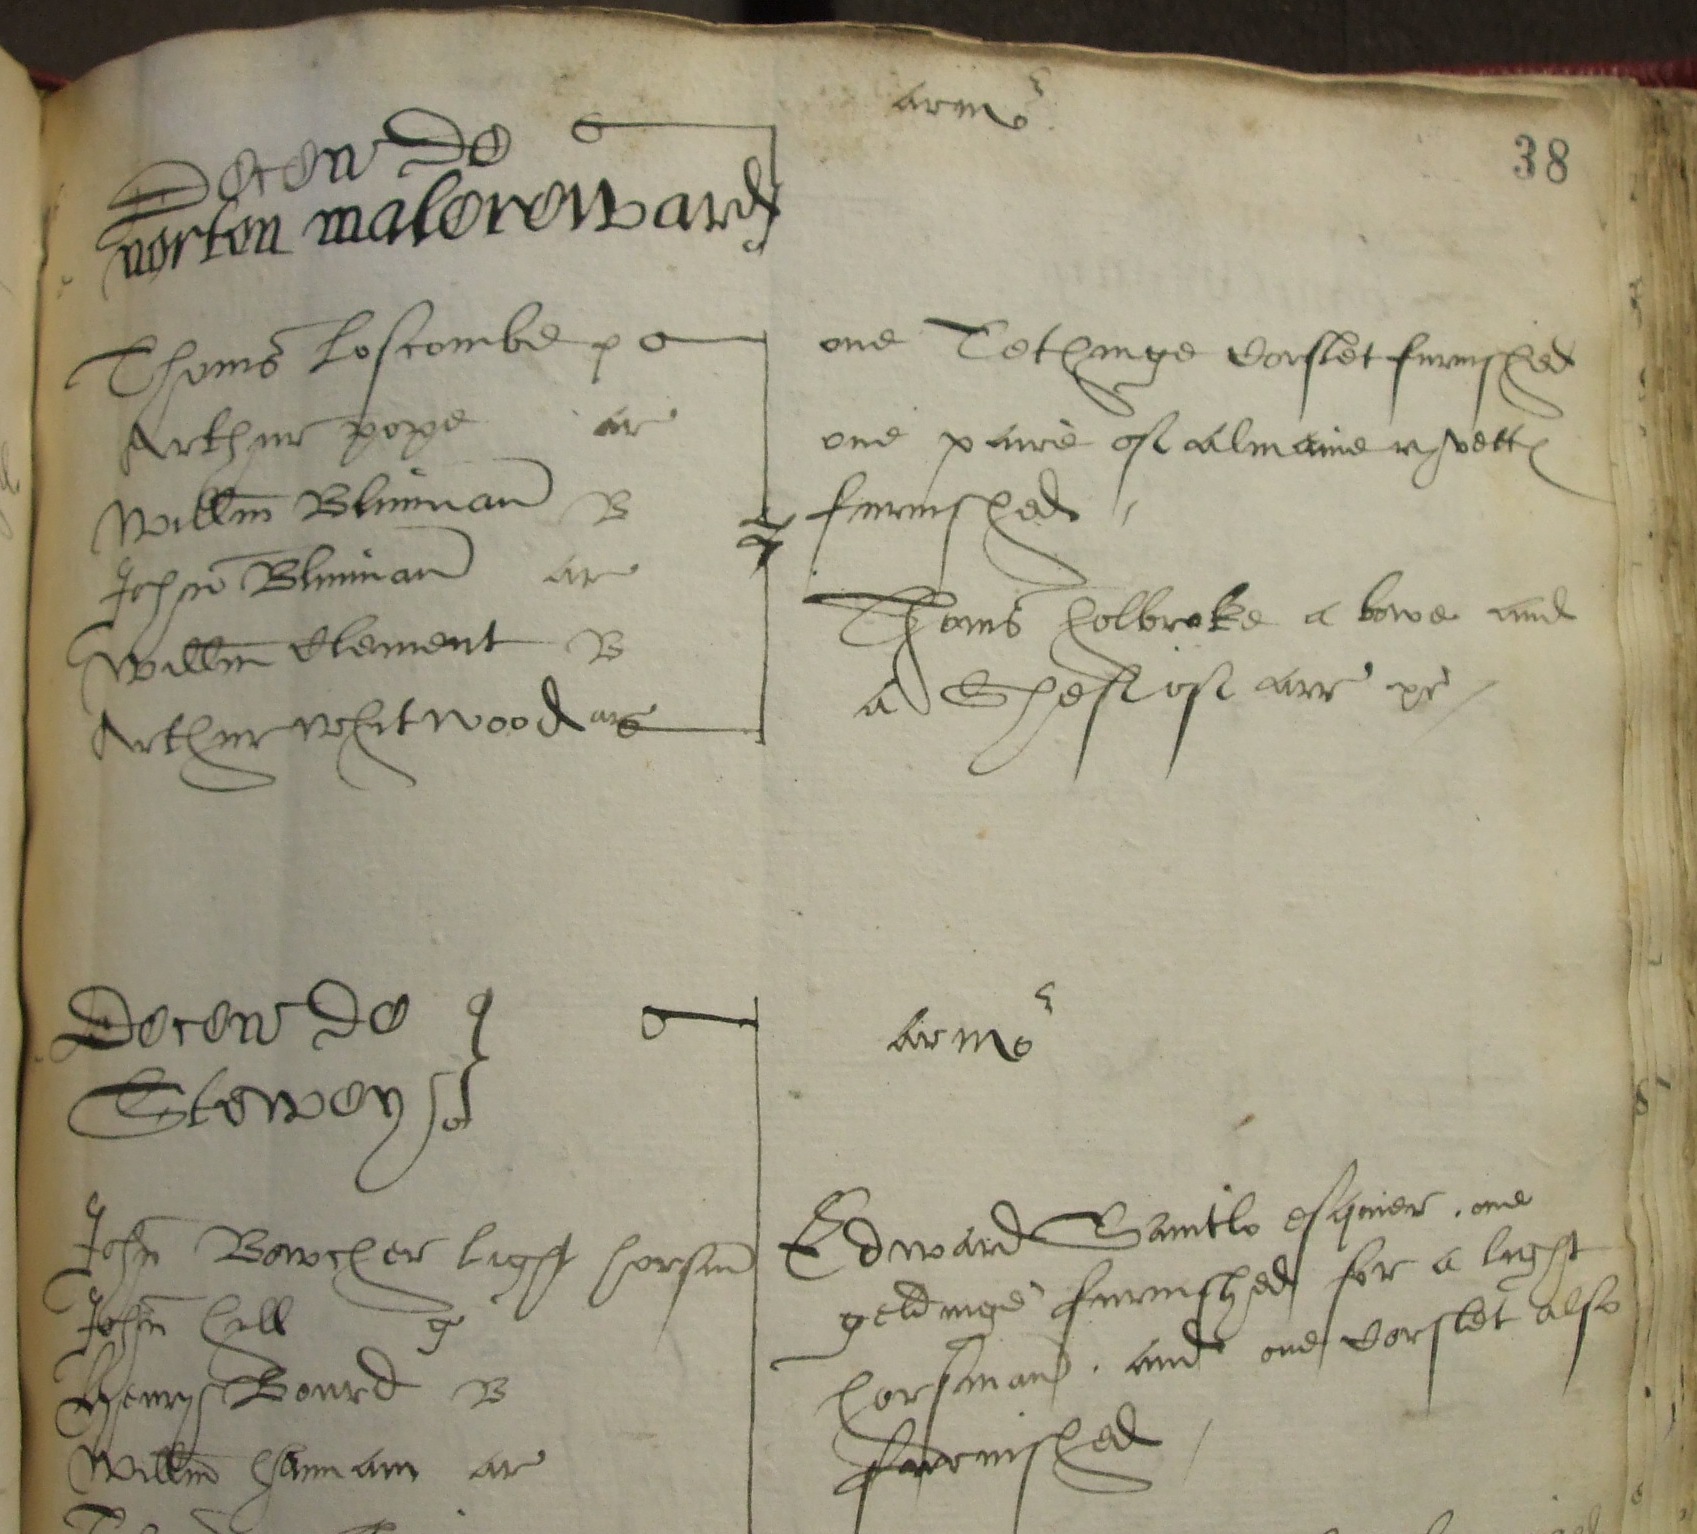 38
Decen de
norton malerewards
armor
Thoms Loscombe p
Arthur pope ar
Willm Blinman B
John Blinman ar
Willm Clement B
Arthur Whitwood ar
one Tethinge corslet furnished
one paire of almaine ryvette
furnished
Thoms holbroke a bowe and
a Sheff of arr pr
Decen de
Stewey
armor
John Bowcher light horsmn
John hill g
Henry Bourd B
Willm Hannam ar
Edward Santlo esquier . one
geldinge furnished for a light
horsman . and one corslet also
furnished